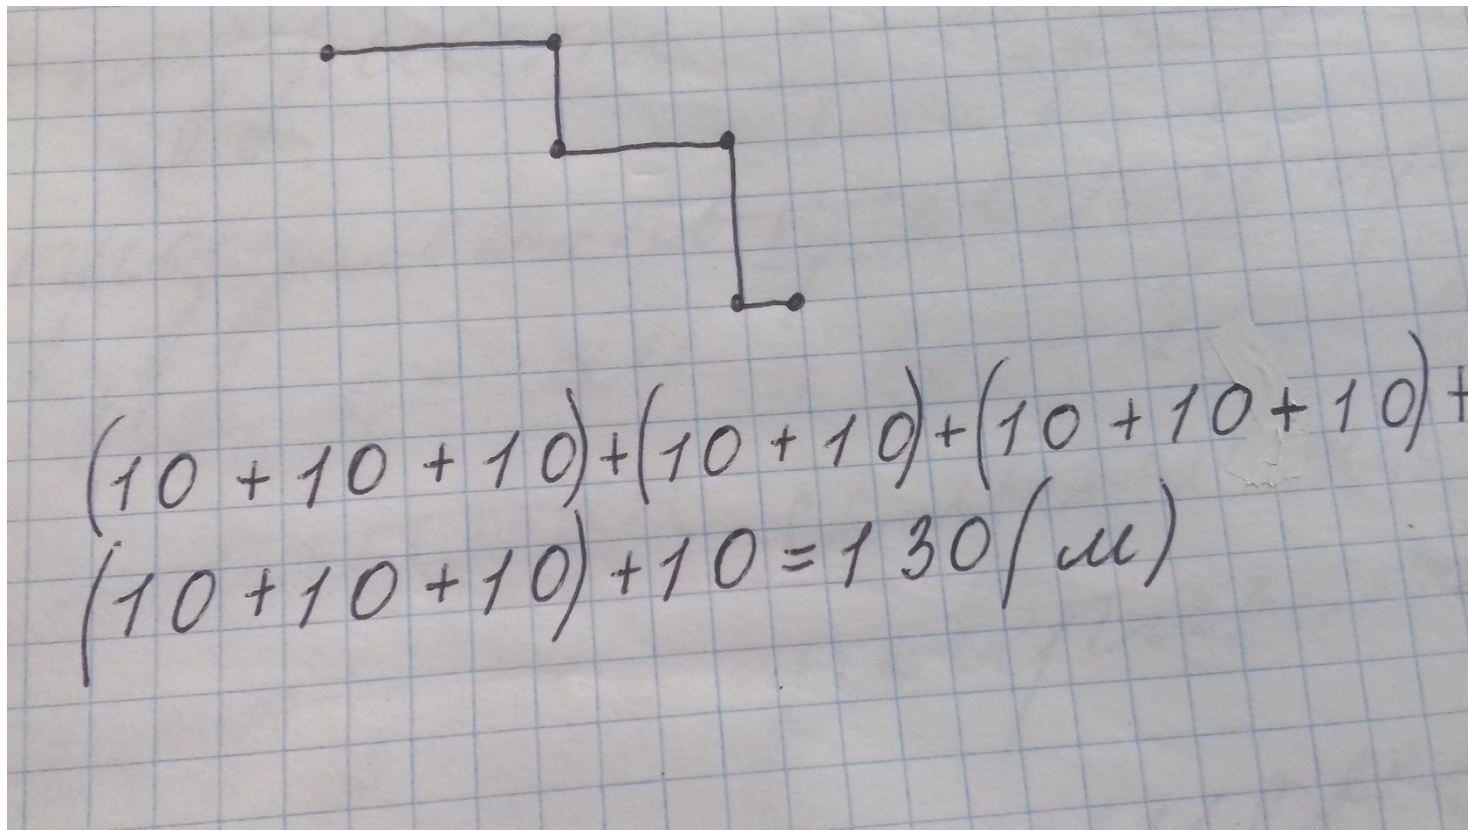 (10 + 10 + 10) + (10 + 10) + (10 + 10 + 10) +
(10 + 10 + 10) + 10 = 130 (м)